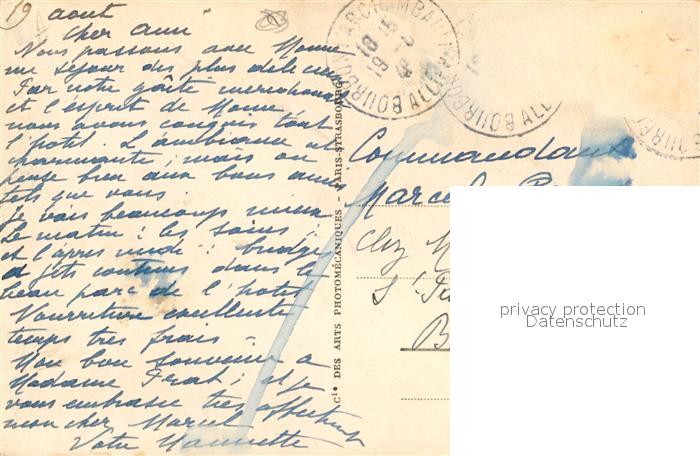 19 aout
Cher ami
Nous passons avec Mome
un séjour des plus délicieux
Par notre gaîté méridionale
et l'esprit de Mome,
nous avons conquis tout
l'hotel. L'ambiance est
charmante; mais on
pense bien aux bons amis
tels que vous.
Je vais beaucoup mieux
Le matin: les soins;
et l'après midi: bridge
et jets continus dans le
beau parc de l'hotel
Nourriture excellente
temps très frais.
Mon bon souvenir a
Madame Prat; et je
vous embrasse très affectueus
mon cher Marcel
Votre
BOURBON L'ARCHAMBAULT
ALLIER
18
BOURBON
ALL
Cie DES ARTS PHOTOMÉCANIQUES - PARIS-STRASBOURG
Commandant
Marcel
Chez M
St
B
privacy protection
Datenschutz